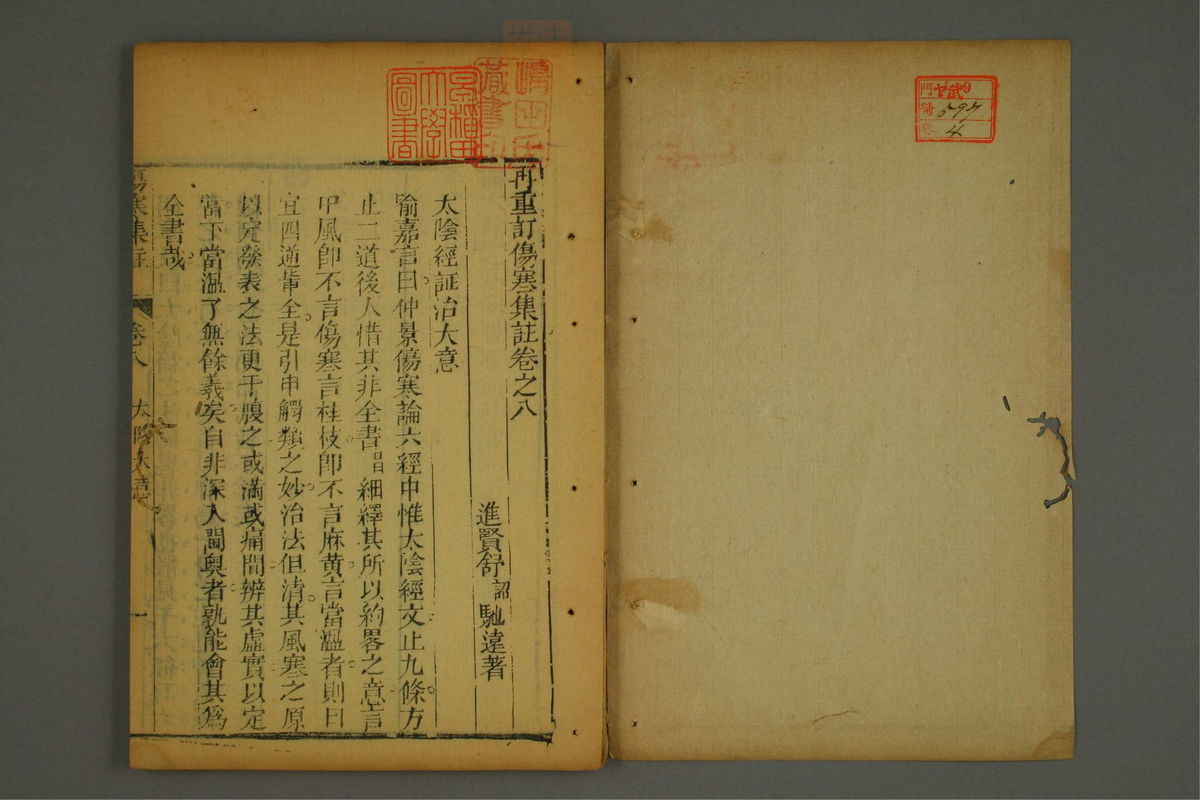 再重訂傷寒集註卷之八
進賢舒詔馳遠著
太陰經証治大意
喻嘉言曰仲景傷寒論六經中惟太陰經文止九條方
止二道後人惜其非全書昌細繹其所以約畧之意言
中風卽不言傷寒言桂枝卽不言麻黃言當溫者則曰
宜四逆軰全是引申觸類之妙治法但清其風寒之原
以定發表之法更于腹之或滿或痛間辨其虛實以定
當下當溫了無餘義矣自非深入閫奥者孰能會其爲
全書哉
傷寒集註 卷八 太陰大意 一
早稻田大學圖書
藏書
門 ヤ9
號 597
卷 4